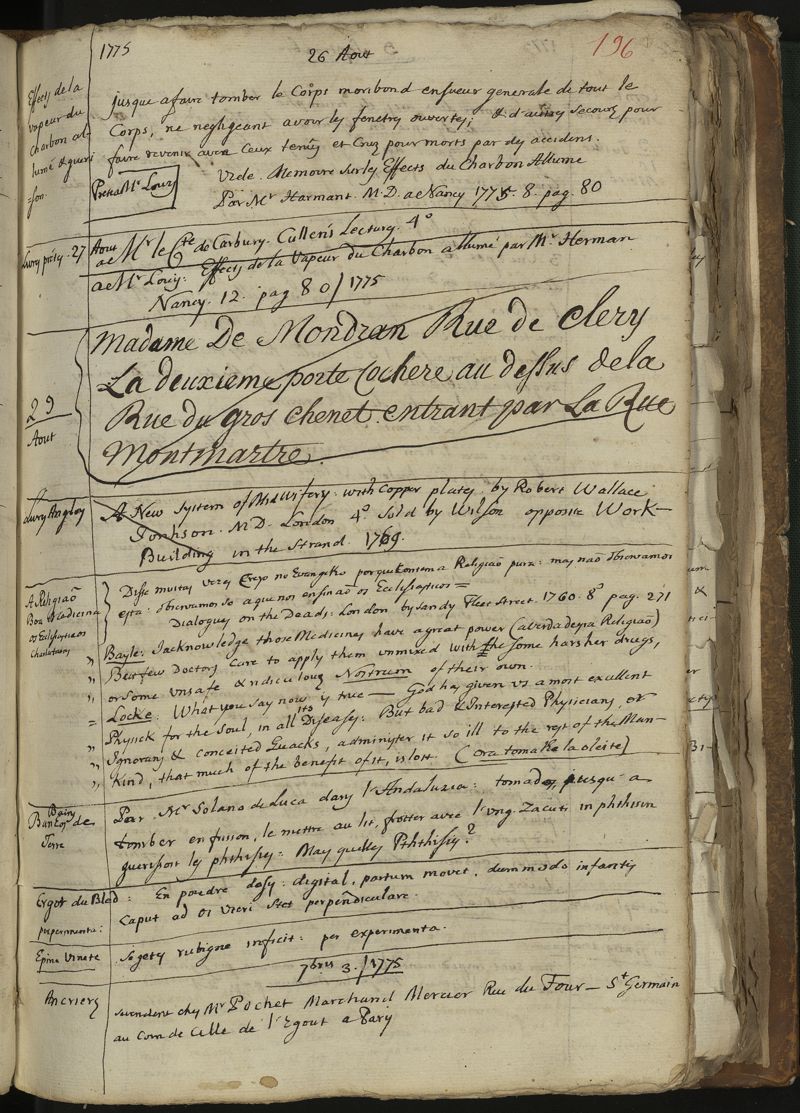 1775
26 Aout
196
Effets de la
vapeur du
charbon al-
lumé & gueri
=son
jusque a faire tomber le Corps moribond en sueur generale de tout le
Corps, ne negligeant avoir les fenetres ouvertes; & d'autres secours pour
faire revenir avec Ceux tenus et Crus pour morts par des accidens.
Vide. Memoire sur les Effects du Charbon Allumé
Par Mr Harmant. M.D. a Nancy 1775. 8. pag. 80
Mr Louis
Livres pretés. 27 Aout
a Mr le Cte de Carbury. Cullen's Lectures. 4°
a Mr Louis. Effets de la Vapeur du Charbon allumé par Mr Herman
Nancy. 12. pag 80/1775
29
Aout
Madame De Mondran Rue de Clery
La deuxieme porte Cochere au dessus de la
Rue du gros chenet. entrant par La Rue
Montmartre.
Livres Angloy
A New System of Midwifery. with Copper plates by Robert Wallace
Jonhson. M.D. London 4° Sold by Wilson opposite Work-
Building in the Strand 1769.
A Religiaõ
Boa Medicina
os Ecclesiasticos
Charlatans
Disse muitas vezes Creyo no Evangelho porque contem a Religiaõ pura: mas naõ observamos
esta: observamos a que nos ensinaõ os Ecclesiasticos =
Dialogues on the Deads: London by Sandy Fleet Street. 1760. 8° pag. 271
" Bayle: I acknowledge those Medicines have a great power (a verdadeira Religiaõ)
" But few Doctors Care to apply them unmixed with the some harsher drugs,
" or some unsafe & ridiculous Nostrum of their own.
= Locke: What you say now is true — God has given us a most excellent
" Physick for the Soul, in all its Diseases: But bad & Interested Physicians, or
" Ignorans & conceited Quacks, administer it so ill to the rest of the Man-
" Kind, that much of the benefit of it, is lost. (Ora tomalke la oleite)
Bains de
Terre
Par Mr Solano de Luca dans l'Andaluzia: jusqu'a
tomber en frisson, le mettre au lit, frotter avec l'ung. Zacuti in phthisin
guerissoit les phthisies: Mais quelles Phthisies?
Ergot du Bled:
per experimenta:
En poudre dosis: digital, partum movet, dummodo infantis
caput ad os uteri stet perpendiculare.
Epine Vinete
Segetes rubigine inficit: per experimenta.
7bres 3./1775
Ancriers
se vendent chez Mr Pochet Marchand Mercier Rue du Four — St Germain
au Coin de Celle de l'Egout a Paris